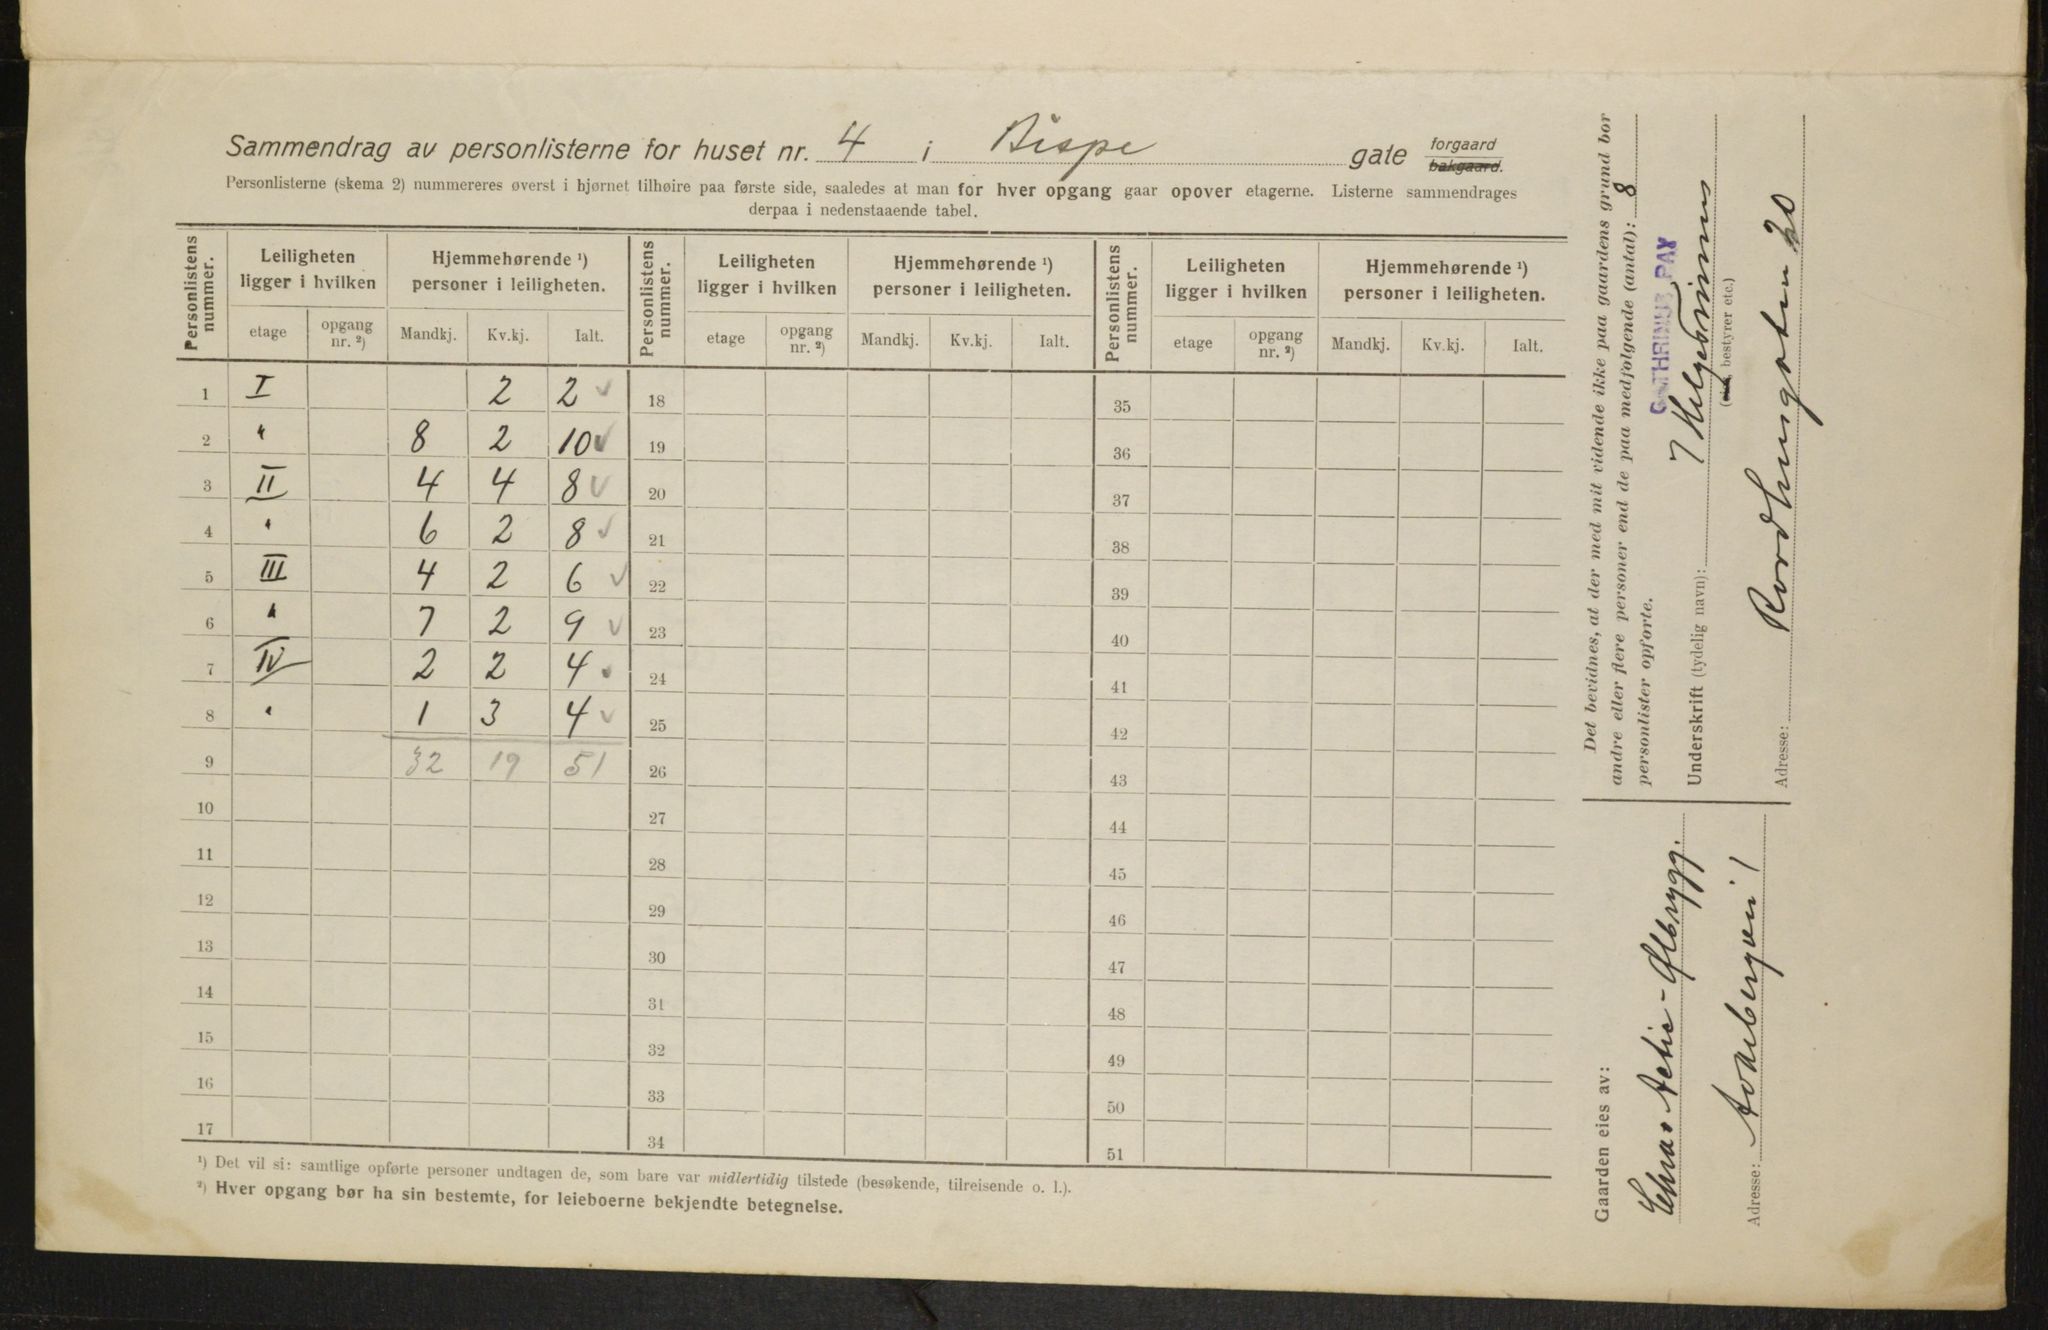 Sammendrag av personlisterne for huset nr. 4 i Bispe gate forgaard bakgaard.
Personlisterne (skema 2) nummereres øverst i hjørnet tilhøire paa første side, saaledes at man for hver opgang gaar opover etagerne. Listerne sammendrages
derpaa i nedenstaaende tabel.
Personlistens nummer. Leiligheten ligger i hvilken Hjemmehørende ¹) personer i leiligheten. Personlistens nummer. Leiligheten ligger i hvilken Hjemmehørende ¹) personer i leiligheten. Personlistens nummer. Leiligheten ligger i hvilken Hjemmehørende ¹) personer i leiligheten.
etage opgang nr. ²) Mandkj. Kv.kj. Ialt. etage opgang nr. ²) Mandkj. Kv.kj. Ialt. etage opgang nr. ²) Mandkj. Kv.kj. Ialt.
1 I 2 2 18 35
2 " 8 2 10 19 36
3 II 4 4 8 20 37
4 " 6 2 8 21 38
5 III 4 2 6 22 39
6 " 7 2 9 23 40
7 IV 2 2 4 24 41
8 " 1 3 4 25 42
9 32 19 51 26 43
10 27 44
11 28 45
12 29 46
13 30 47
14 31 48
15 32 49
16 33 50
17 34 51
¹) Det vil si: samtlige opførte personer undtagen de, som bare var midlertidig tilstede (besøkende, tilreisende o. l.).
²) Hver opgang bør ha sin bestemte, for leieboerne bekjendte betegnelse.
Det bevidnes, at der med mit vidende ikke paa gaardens grund bor
andre eller flere personer end de paa medfølgende (antal): 8
personlister opførte.
CATHRINUS PAX
Underskrift (tydelig navn):
bestyrer etc.)
Adresse: 20
Gaarden eies av:
Adresse: 1